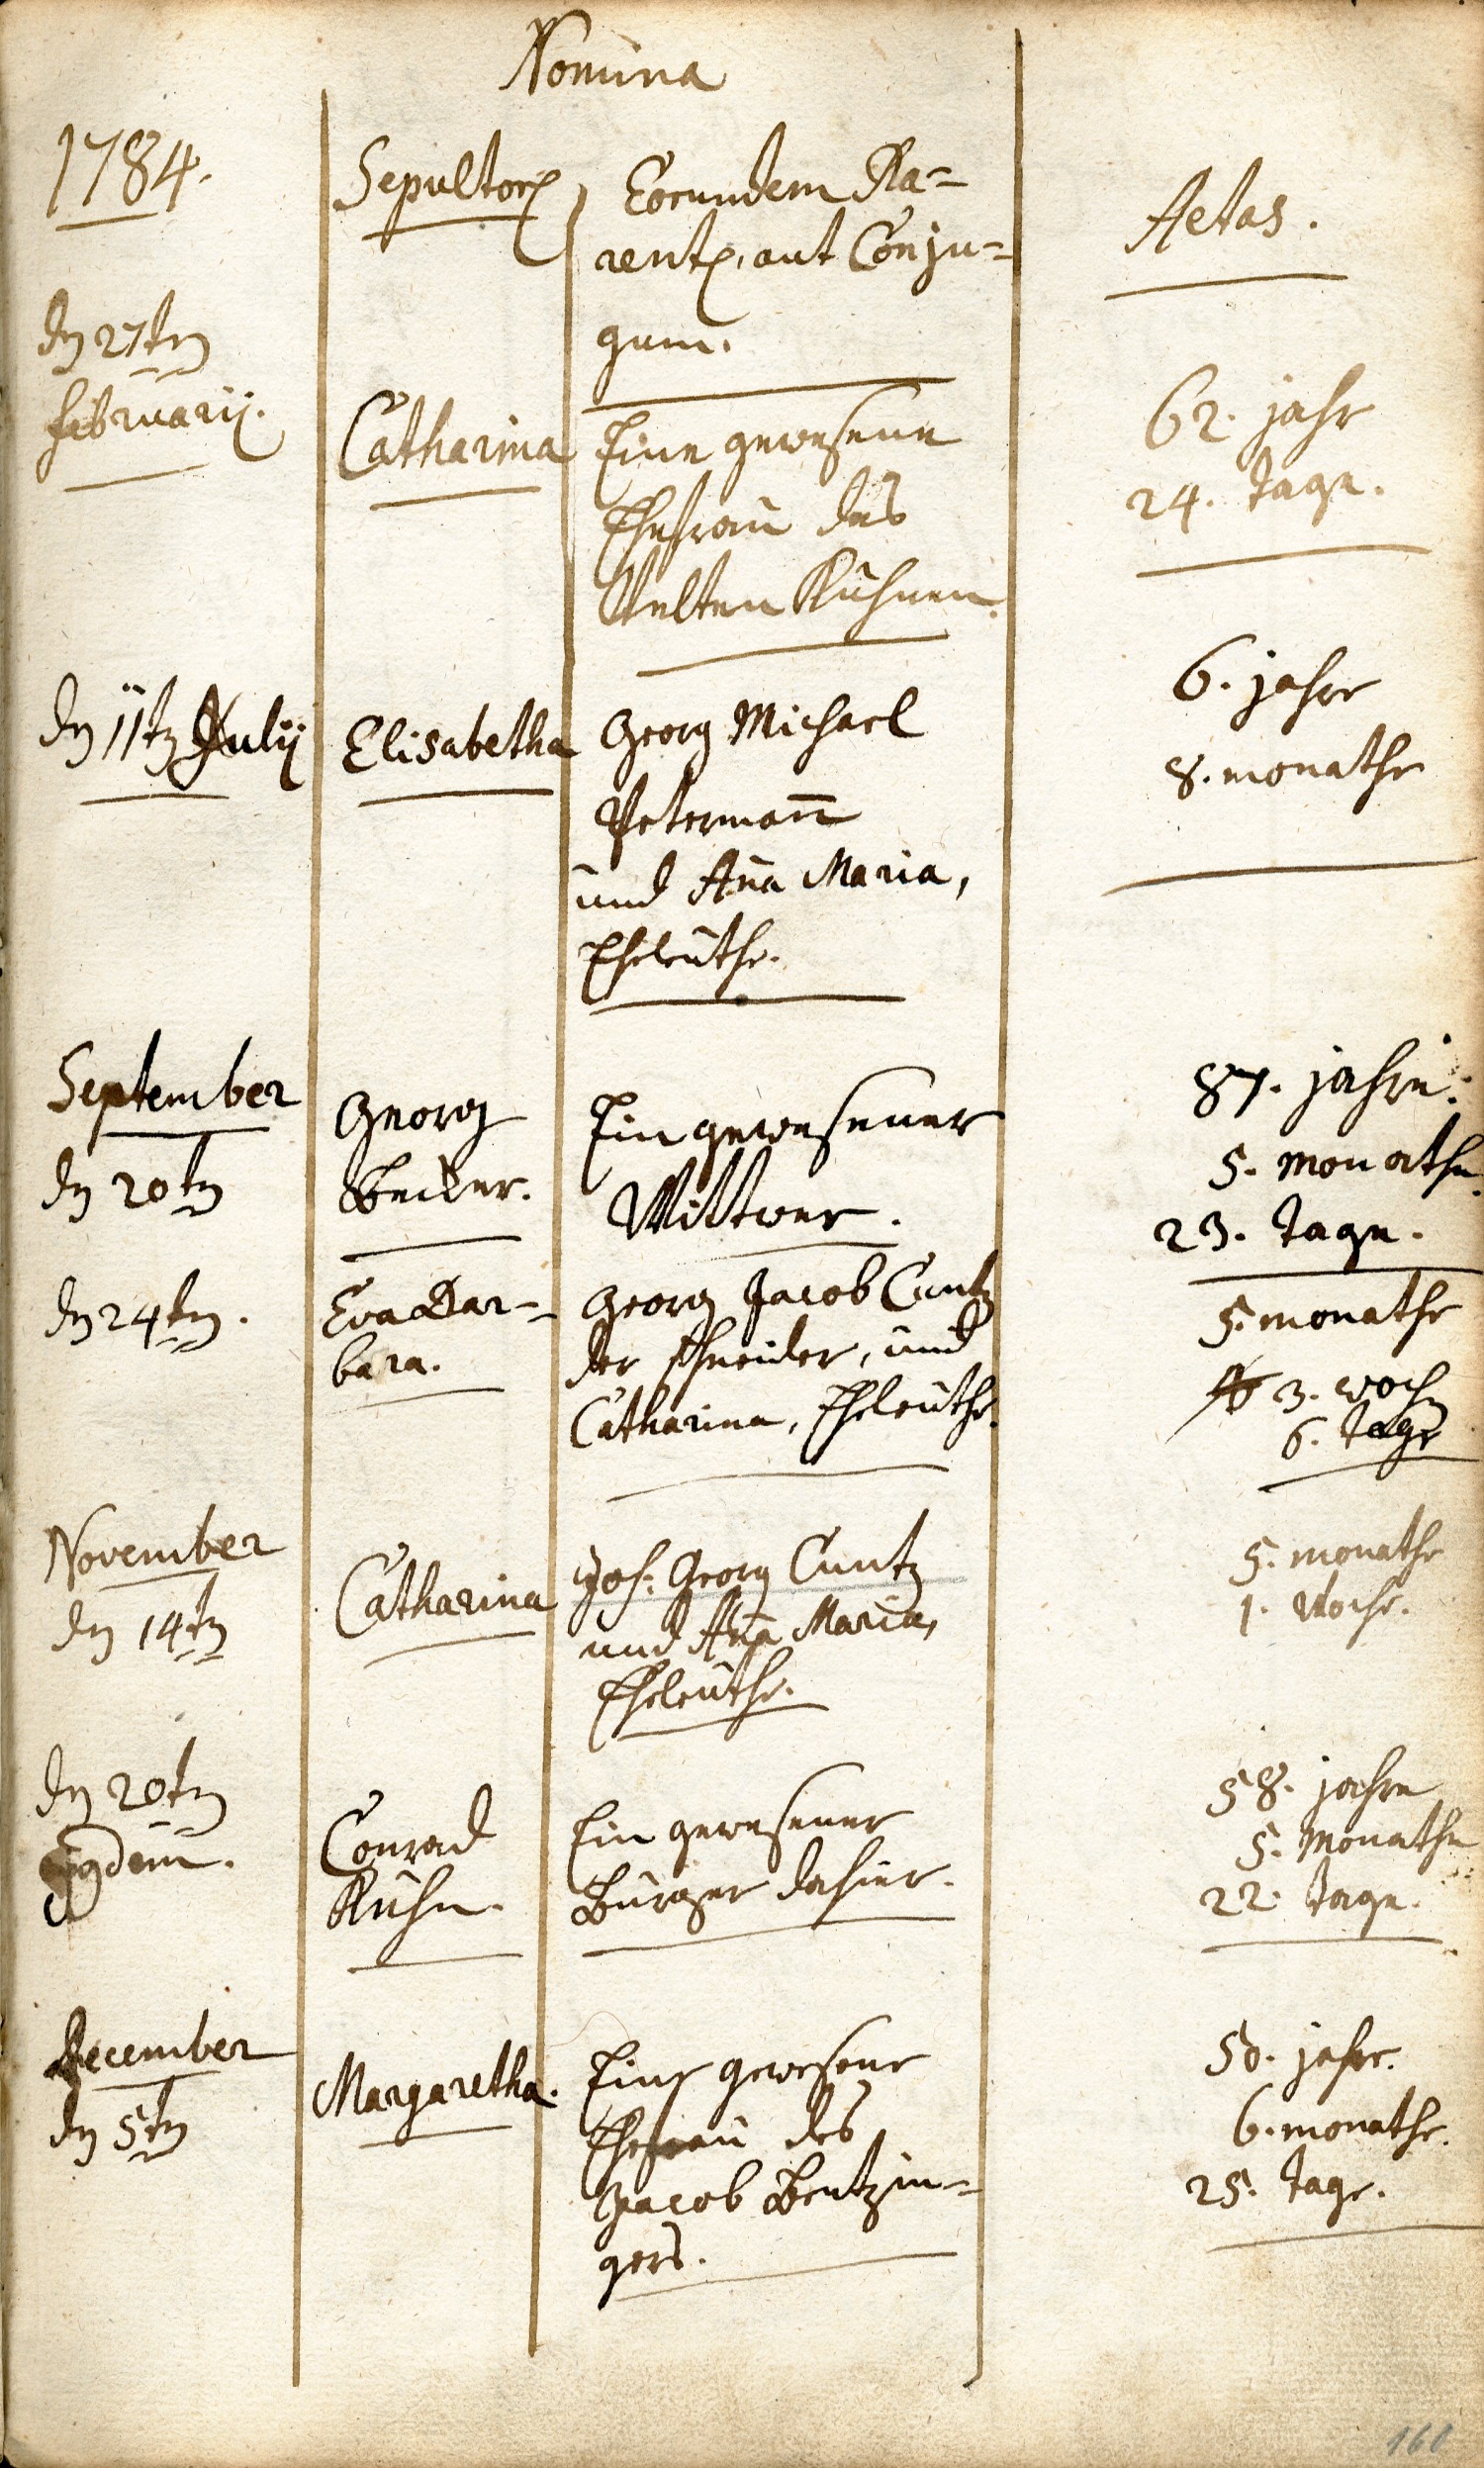 Nomina
1784.
Sepultor, Eorundem Pa=
rent, aut Conju=
gum.
Aetas.
dn 27tn
februarij.
Catharina
Eine gewesene
Ehefrau des
Velten Kuhnen.
62. jahr
24. tage.
dn 11tn Julij
Elisabetha
Georg Michael
Petermañ
und Aña Maria,
Eheleuthe.
6. jahre
8. monathe
September
dn 20tn
Georg
Becker.
Ein gewesener
Wittwer.
87. jahre.
5. monathe.
23. tage.
dn 24tn.
Eva Bar=
bara.
Georg Jacob Cuntz
der schneider, und
Catharina, Eheleuthe.
5. monathe
3. woch
6. tage
November
dn 14tn
Catharina
Joh: Georg Cuntz
und Aña Maria,
Eheleuthe.
5. monathe
1. Woche.
dn 20tn
ejusdem.
Conrad
Kuhn.
Ein gewesener
Burger dahier.
58. jahre
5. Monathe
22. tage.
December
dn 5tn
Margaretha.
Eine gewesene
Ehefrau des
Jacob Bentzin=
gers.
50. jahre.
6. monathe.
25. tage.
160